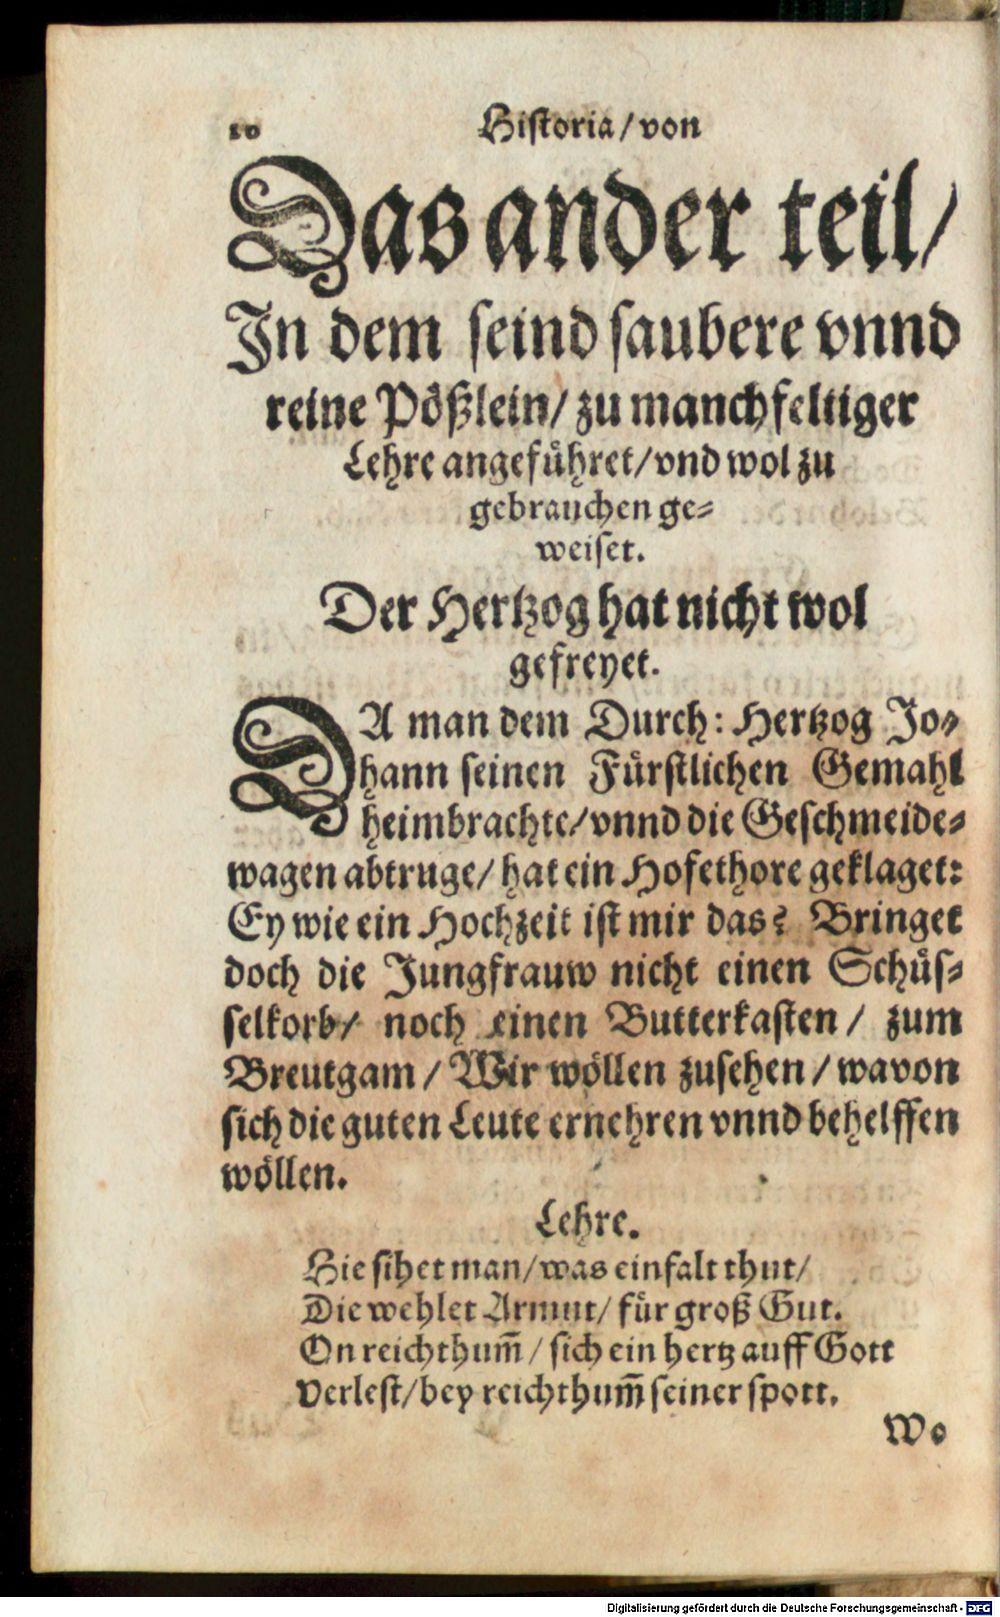 10 Historia / von
Das ander teil /
In dem seind saubere vnnd
reine Pößlein / zu manchfeltiger
Lehre angeführet / vnd wol zu
gebrauchen ge-
weiset.
Der Hertzog hat nicht wol
gefreyet.
DA man dem Durch: Hertzog Jo-
hann seinen Fürstlichen Gemahl
heimbrachte / vnnd die Geschmeide-
wagen abtruge / hat ein Hofethore geklaget:
Ey wie ein Hochzeit ist mir das? Bringet
doch die Jungfrauw nicht einen Schüs-
selkorb / noch einen Butterkasten / zum
Breutgam / Wir wöllen zusehen / wavon
sich die guten Leute ernehren vnnd behelffen
wöllen.
Lehre.
Hie sihet man / was einfalt thut /
Die wehlet Armut / für groß Gut.
On reichthum̄ / sich ein hertz auff Gott
Verlest / bey reichthum̄ seiner spott.
Wo
Digitalisierung gefördert durch die Deutsche Forschungsgemeinschaft - DFG